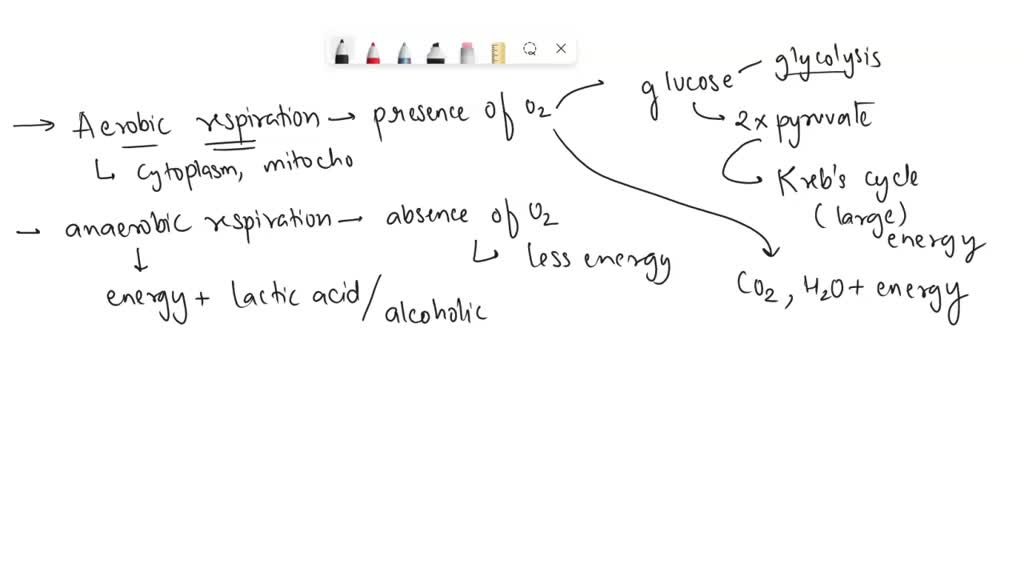 → Aerobic respiration → presence of O2
↳ cytoplasm, mitocho
→ anaerobic respiration → absence of O2
↳ less energy
↓
energy + lactic acid/alcoholic
glucose – glycolysis
↳ 2x pyruvate
Kreb's cycle
(large)
energy
CO2, H2O + energy